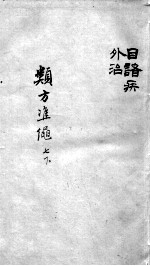 目諸疾
外治
類方準繩 七下